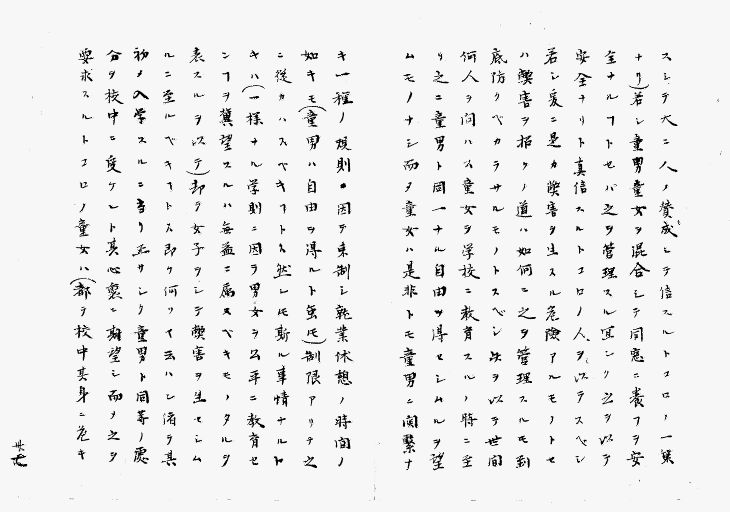 スシテ大ニ人ノ賛成シテ信スルトコロノ一策
ナリ(若シ童男童女ヲ混合シテ同窓ニ養フヲ安
全ナルコトセバ之ヲ管理スル宜シク之ヲ以テ
安全ナリト真信スルトコロノ人ヲ以テスベシ
若シ爰ニ是カ弊害ヲ生スル危険アルモノトセ
ハ弊害ヲ招クノ道ハ如何ニ之ヲ管理スルモ到
底防クベカラサルモノトスベシ故ヲ以テ世間
何人ヲ問ハス童女ヲ学校ニ教育スルノ時ニ至
リ之ニ童男ト同一ナル自由ヲ得セシムルヲ望
ムモノナシ而メ童女ハ是非トモ童男ニ関繋ナ
キ一種ノ規則ニ因テ束制シ就業休憩ノ時間ノ
如キモ(童男ハ自由ヲ得ルト虽モ)制限アリテ之
ニ従カハスベキコトトス然レモ斯ル事情ナルト
キハ(一様ナル学則ニ因テ男女ヲ公平ニ教育セ
ンコヲ冀望スルハ無益ニ属スベキモノタルヲ
表スルヲ以テ)却テ女子ヲシテ弊害ヲ生セシム
ルニ至ルベキコトトス即ク何ソイ云ハン偖テ其
初メ入学スルニ当リ正サシク童男ト同等ノ處
分ヲ校中ニ受ケント其心裏ニ期望シ而メ之ヲ
要求スルトコロノ童女ハ(都テ校中其身ニ危キ